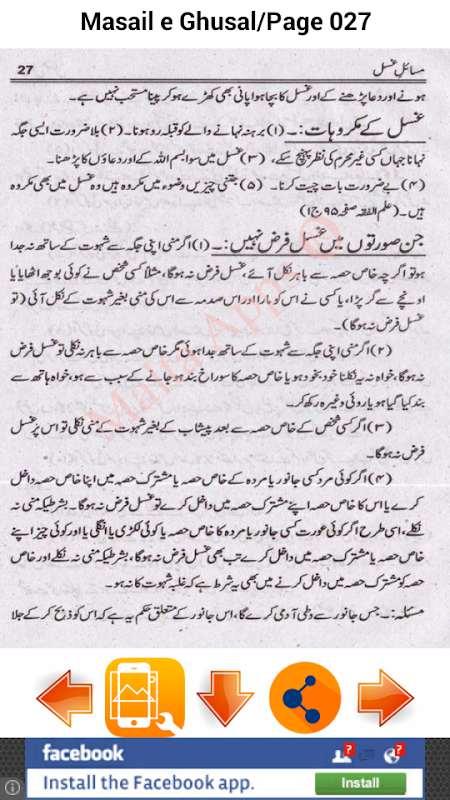 Masail e Ghusal/Page 027
مسائلِ غسل 27
ہونے اور دعا پڑھنے کے اور غسل کا بچا ہوا پانی بھی کھڑے ہو کر پینا مستحب نہیں ہے۔
غسل کے مکروہات :۔ (۱) برہنہ نہانے والے کو قبلہ رو ہونا۔ (۲) بلا ضرورت ایسی جگہ
نہانا جہاں کسی غیر محرم کی نظر پہنچ سکے، (۳) غسل میں سوا بسم اللہ کے اور دعاؤں کا پڑھنا۔
(۴) بے ضرورت بات چیت کرنا۔ (۵) جتنی چیزیں وضوء میں مکروہ ہیں وہ غسل میں بھی مکروہ
ہیں۔ (علم الفقہ صفحہ ۹۵ ج ۱)
جن صورتوں میں غسل فرض نہیں :۔ (۱) اگر منی اپنی جگہ سے شہوت کے ساتھ نہ جدا
ہو تو اگرچہ خاص حصہ سے باہر نکل آئے، غسل فرض نہ ہوگا، مثلاً کسی شخص نے کوئی بوجھ اٹھایا یا
اونچے سے گر پڑا، یا کسی نے اس کو مارا اور اس صدمہ سے اس کی منی بغیر شہوت کے نکل آئی (تو
غسل فرض نہ ہوگا)۔
(۲) اگر منی اپنی جگہ سے شہوت کے ساتھ جدا ہوئی مگر خاص حصہ سے باہر نہ نکلی تو غسل فرض
نہ ہوگا، خواہ نہ یہ نکلنا خود بخود ہو یا خاص حصہ کا سوراخ بند ہو جانے کے سبب سے ہو، خواہ ہاتھ سے
بند کیا گیا ہو یا روئی وغیرہ، رکھ کر۔
(۳) اگر کسی شخص کے خاص حصہ سے بعد پیشاب کے بغیر شہوت کے منی نکلی تو اس پر غسل
فرض نہ ہوگا۔
(۴) اگر کوئی مرد کسی جانور یا مردہ کے خاص حصہ یا مشترک حصہ میں اپنا خاص حصہ داخل
کرے یا اس کا خاص حصہ اپنے مشترک حصہ میں داخل کرے تو غسل فرض نہ ہوگا۔ بشرطیکہ منی نہ
نکلے، اسی طرح اگر کوئی عورت کسی جانور یا مردہ کا خاص حصہ یا کوئی لکڑی یا انگلی یا اور کوئی چیز اپنے
خاص حصہ یا مشترک حصہ میں داخل کرے تب بھی غسل فرض نہ ہوگا، بشرطیکہ منی نہ نکلے اور خاص
حصہ کو مشترک حصہ میں داخل کرنے میں بھی یہ شرط ہے کہ غلبہ شہوت کا نہ ہو۔
مسئلہ :۔ جس جانور سے وطی آدمی کرے گا، اس جانور کے متعلق حکم یہ ہے کہ اس کو ذبح کر کے جلا
Malta Apps
facebook
? ?
Install the Facebook app.
Install